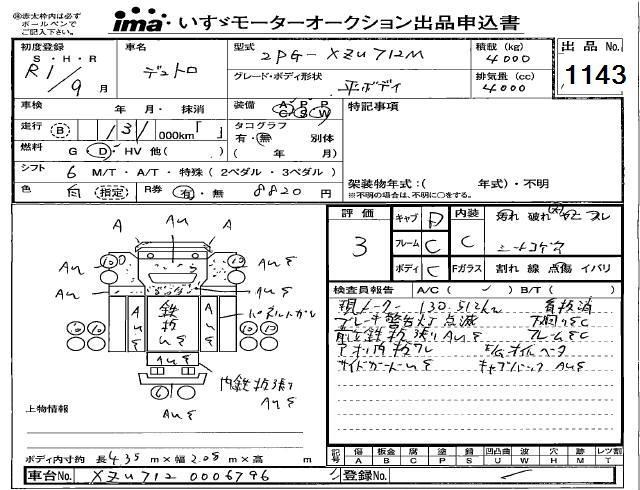 ※赤太枠内は必ず
ボールペンで
ご記入下さい。
ima いすゞモーターオークション出品申込書
初度登録 車名 型式 積載 (kg) 出品 No.
S・H・R デュトロ 2PG-XZU712M 4000
R1/9 月 グレード・ボディ形状 平ボディ 排気量 (cc) 4000 1143
車検 年 月・ 抹消 装備 A/C P/S P/W 特記事項
走行 B 131 000km「 」 タコグラフ
有・無 別体
燃料 G・D・HV 他( ) ( 年 月)
シフト 6 M/T・A/T・特殊 ( 2ペダル・3ペダル ) 架装物年式:( 年式)・不明
※不明の場合は、不明に○をする。
色 白 (指定) R券 有・無 8820 円
評価 3 キャブ D 内装 C 汚れ 破れ
フレーム C シートコゲ穴
ボディ C Fガラス 割れ 線 点傷 イバリ
検査員報告 A/C ( ) B/T ( )
現メーター 130,512km 有抹消
ブレーキ警告灯 点滅 下廻りEC
前立鉄板張り AuE フレームEC
アオリ内板ワレ E/Gオイルベータ
サイドガードuE キャブバック AuE
A Au A
Au Au AuE
AuE AuE
鉄板uE
パネルカガリ
AuE
内鉄板張り
AuE
6
AuE
上物情報
ボディ内寸約 長 4.35 m×幅 2.08 m×高 m
記号 傷 A 板金 B 腐 C 塗 P 錆 S 凹凸曲 U 波 W 穴 H 跡 M レツ割 T
車台No. XZU712 0006796 登録No.